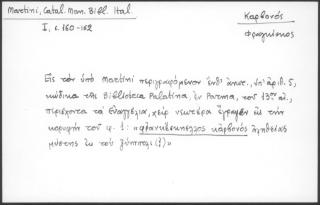 Martini, Catal. Man. Bibl. Ital.
I, s. 160-162
Καρβονός
Φραγκίσκος
Εἰς τὸν ὑπὸ Martini περιγραφόμενον ἐνθ' ἀνωτ., ὑπ' ἀριθ. 5,
κώδικα τῆς Biblioteca Palatina, ἐν Parma, τοῦ 13ου αἰ.,
περιέχοντα τὰ Εὐαγγέλια, χεὶρ νεωτέρα ἔγραψεν εἰς τὴν
κορυφὴν τοῦ φ. 1: κάρβονός ἀληθείας
μύστης ἐκ τοῦ (!)»